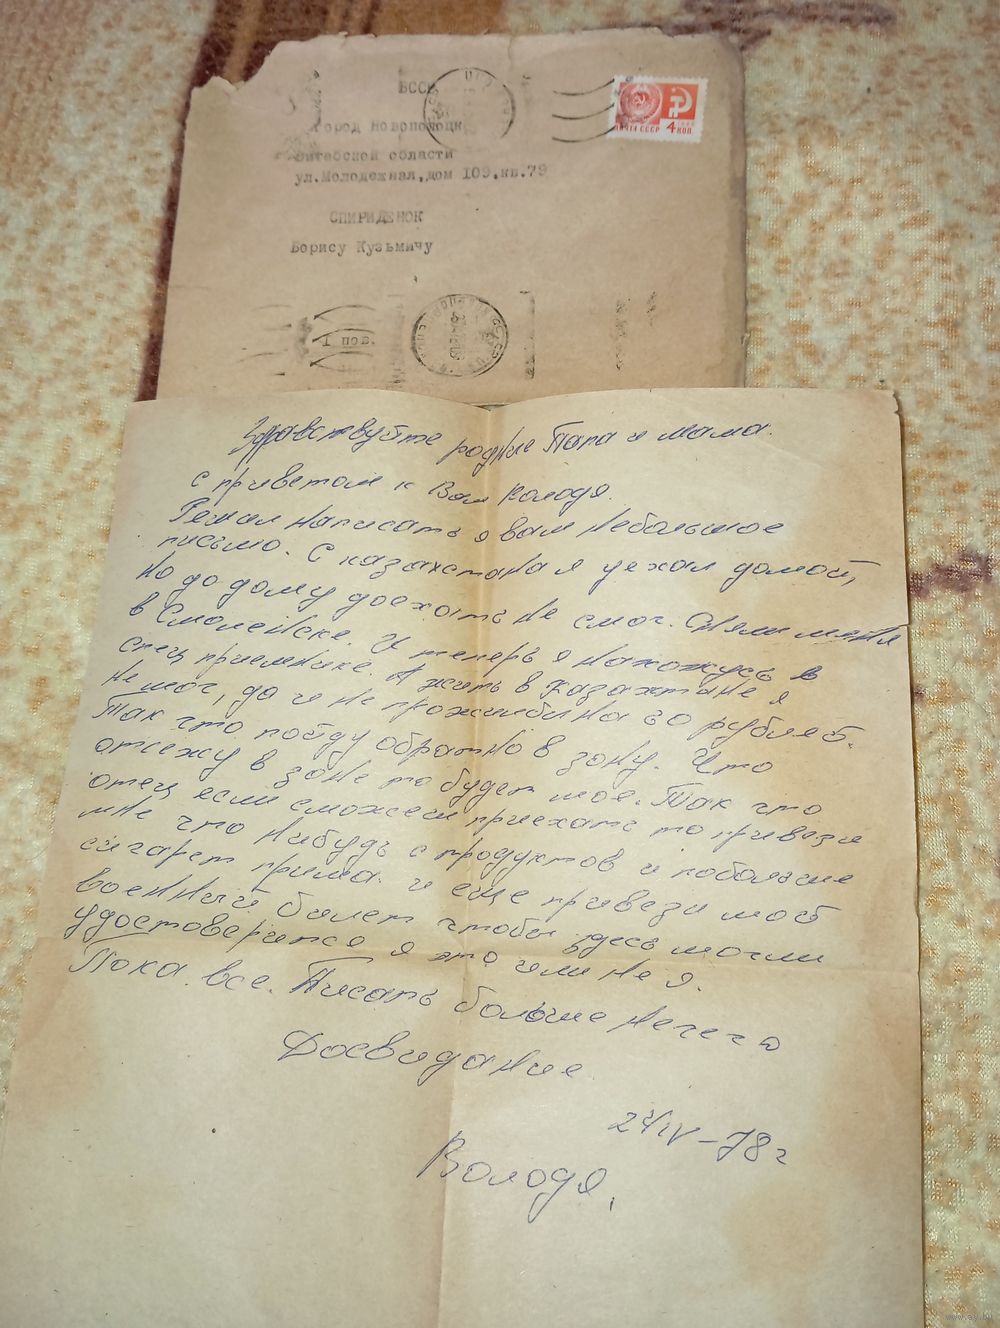 БССР
Город Новополоцк
Витебской области
ул.Молодежная,дом 109,кв.79
СПИРИДЕНОК
Борису Кузьмичу
ПОЧТА СССР
4 коп
Здравствуйте родные Папа и мама.
с приветом к Вам Володя.
Решил написать я вам небольшое
письмо. С казахстана я уехал домой,
но до дому доехать не смог. Сняли меня
в Смоленске. И теперь я нахожусь в
спец приемнике. А жить в Казахтане я
не мог, да и не проживёш на 30 рублей.
Так что пойду обратно в зону. Что
отсежу в зоне то будет мое. Так что
отец если сможеш приехать то привези
мне что нибудь с продуктов и побольше
сигарет прима. и еще привези мой
военный билет чтобы здесь могли
удостоверится я это или не я.
Пока все. Писать больше нечего
Досвидание
24/IV-78г
Володя,
www.ay.by